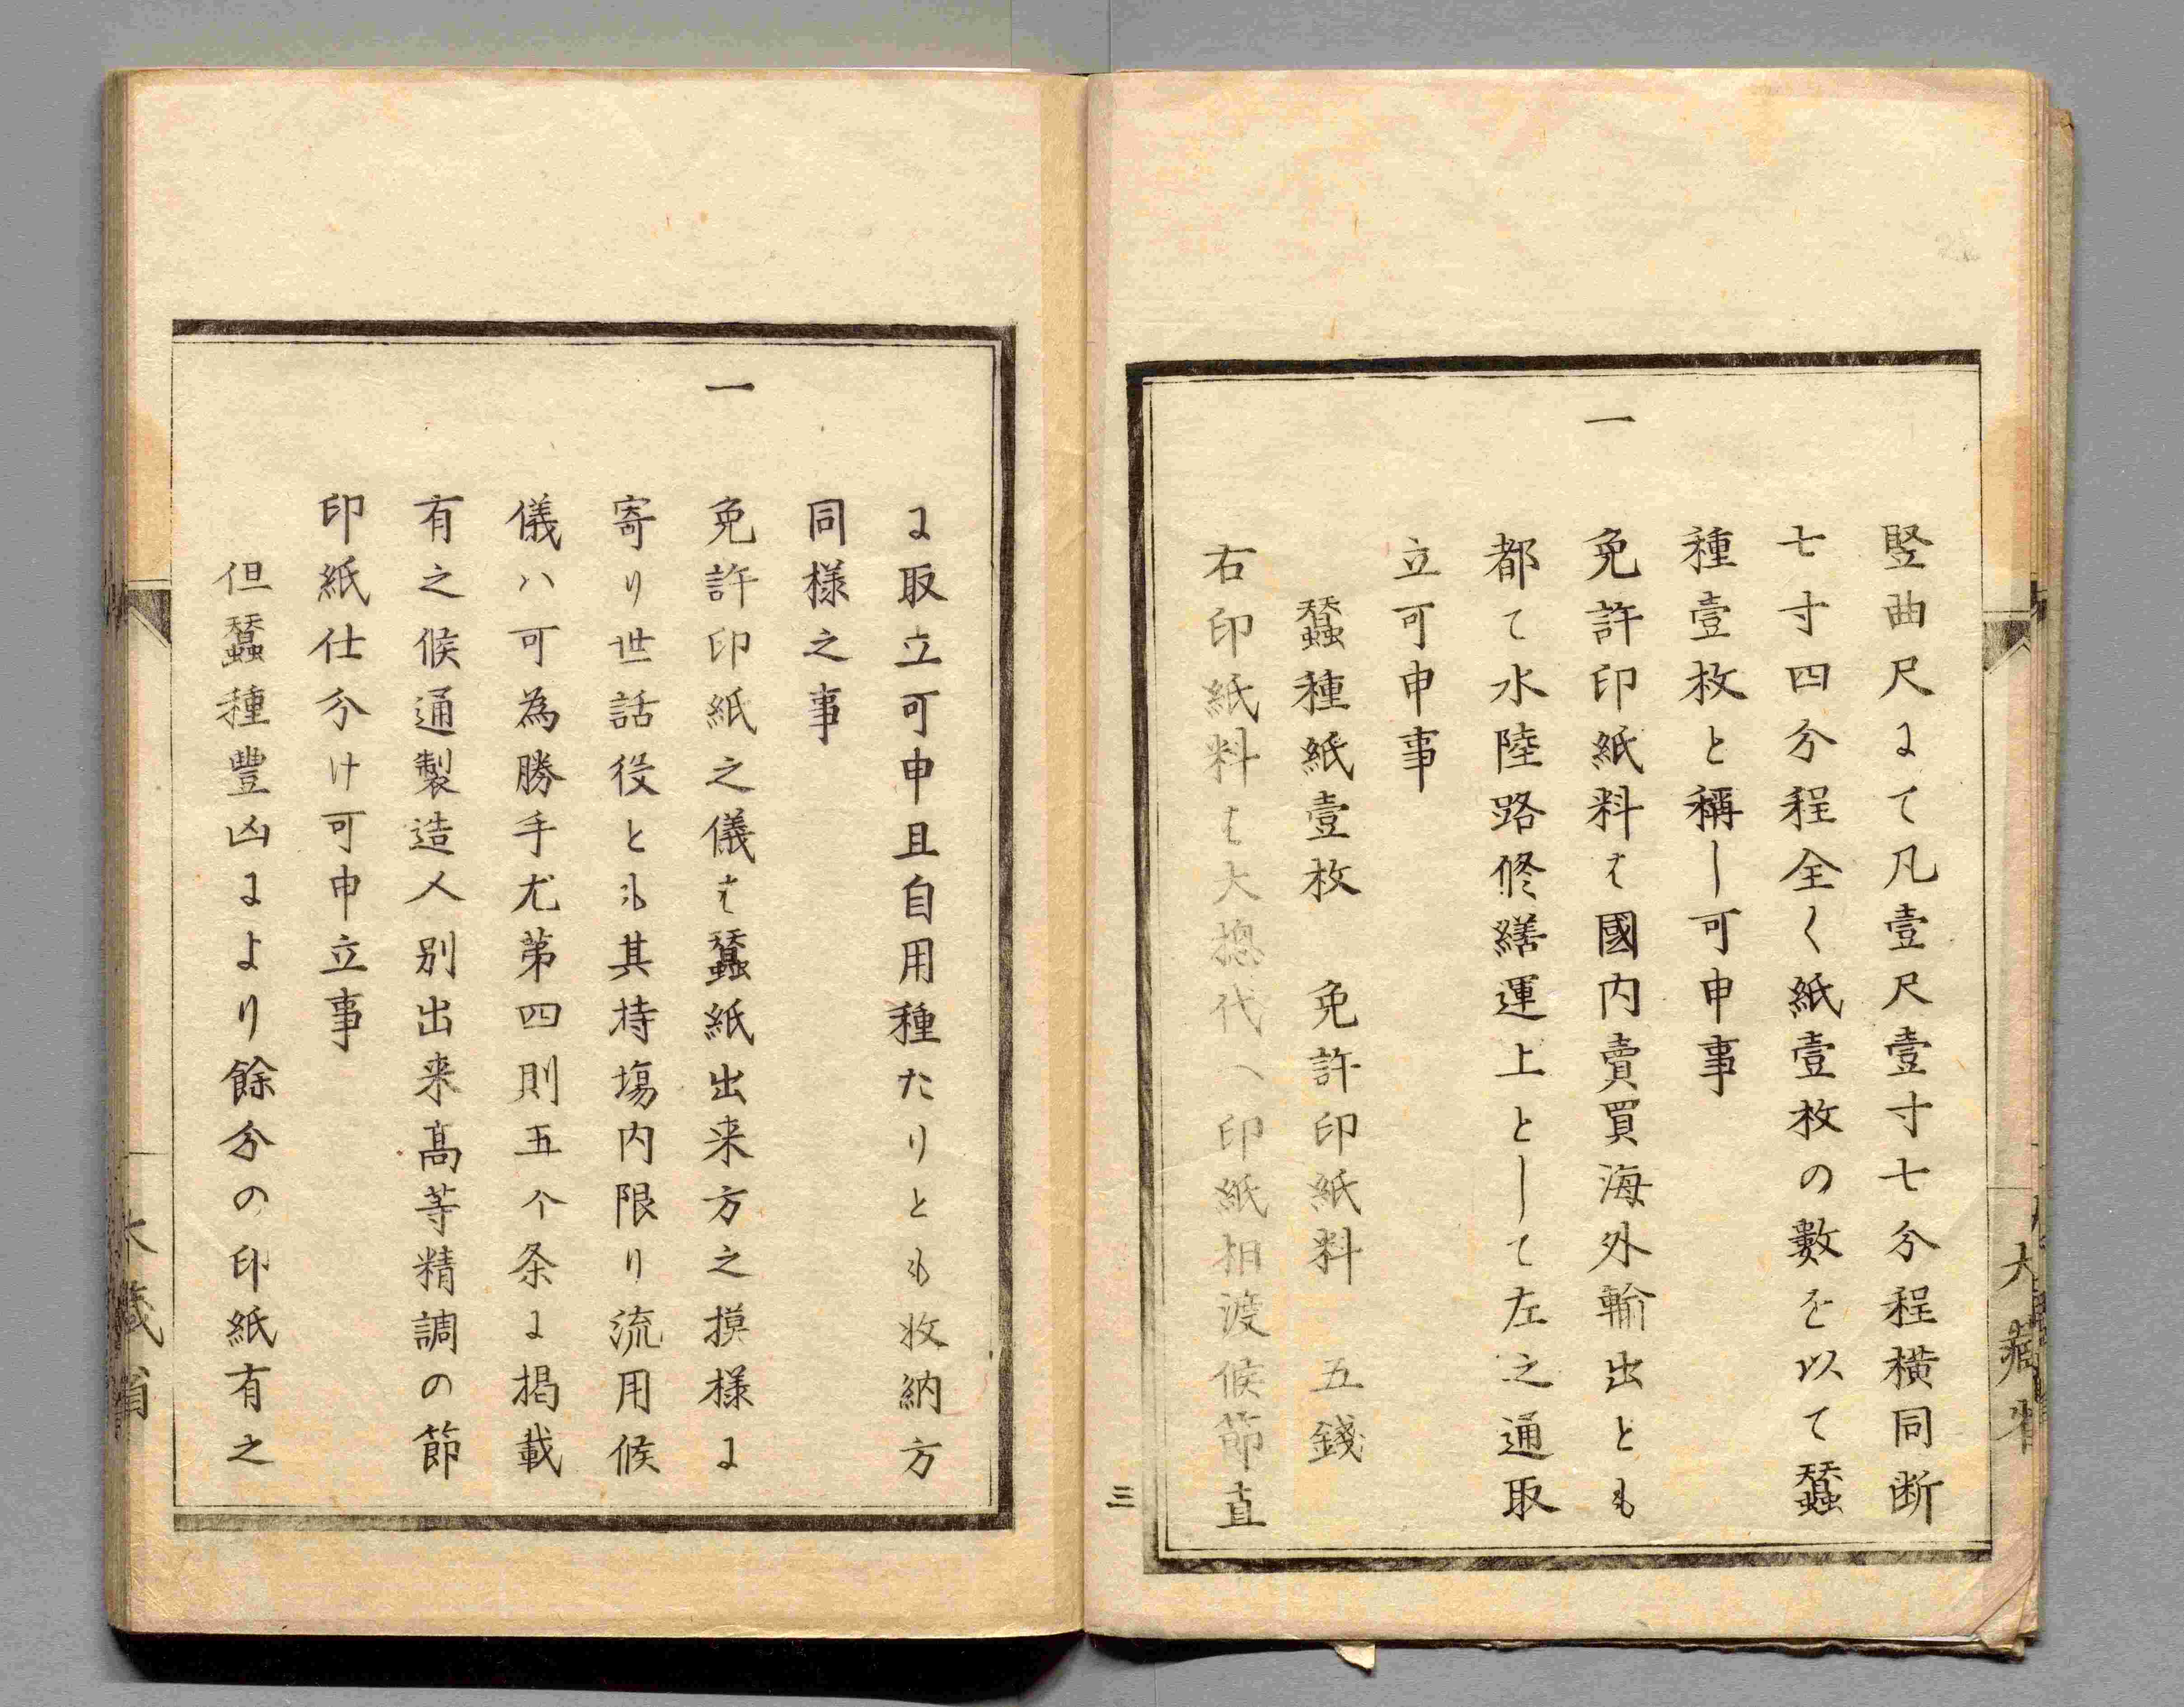 竪曲尺にて凡壹尺壹寸七分程横同断
七寸四分程全く紙壹枚の數を以て蠶
種壹枚と稱し可申事
一 免許印紙料は國内賣買海外輸出とも
都て水陸路修繕運上として左之通取
立可申事
蠶種紙壹枚 免許印紙料 五錢
右印紙料は大總代へ印紙相渡候節直
三
に取立可申且自用種たりとも收納方
同様之事
一 免許印紙之儀は蠶紙出来方之摸様に
寄り世話役とも其持塲内限り流用候
儀ハ可為勝手尤第四則五个条に掲載
有之候通製造人別出来髙等精調の節
印紙仕分け可申立事
但蠶種豐凶により餘分の印紙有之
大藏省